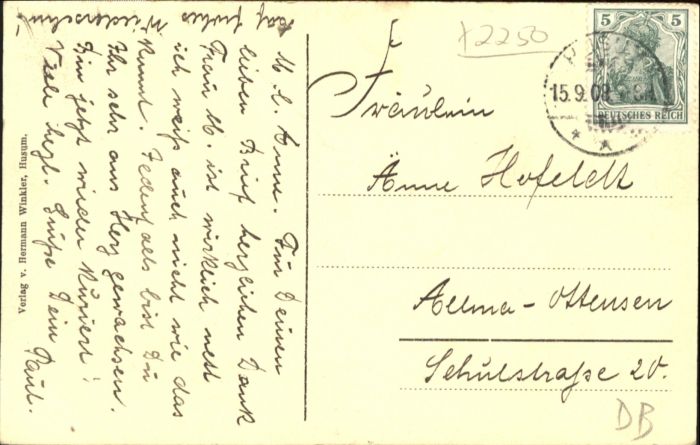 x 2250
5 5
DEUTSCHES REICH
15.9.08
Fräulein
Änne Hofeldt
Altona-Ottensen
Schulstraße 20.
DB
M. l. Änne. Für Deinen
lieben Brief herzlichen Dank
Frau M. ist wirklich nett
ich weiß auch nicht wie das
kommt. Jedenfalls bist Du
Ihr sehr ans Herz gewachsen.
Bin jetzt wieder kuriert!
Viele herzl. Grüße Dein
Paul.
Auf frohes Wiedersehn!
Verlag v. Hermann Winkler, Husum.